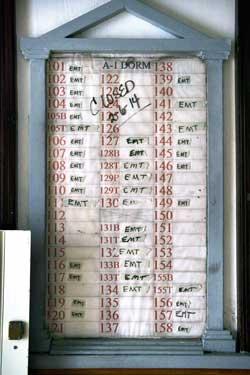 A-1 DORM
101 EMT 138
102 EMT 122 139 EMT
103 EMT 140
104 EMT CLOSED 141 EMT
105B EMT 6-14 142
105T EMT 126 143 EMT
106 EMT 127 EMT 144
107 EMT 128B EMT 145
EMT 128T EMT 146 EMT
109 EMT 129B EMT 147
110 EMT 129T EMT 148
EMT 130 149
112 150
113 131B EMT 151
114 131T EMT 152
115 EMT 153
116 EMT 133B EMT 154
117 EMT 133T EMT 155B
118 134 EMT 155T EMT
119 EMT 135 156 EMT
EMT 136 157 EMT
121 137 158 EMT